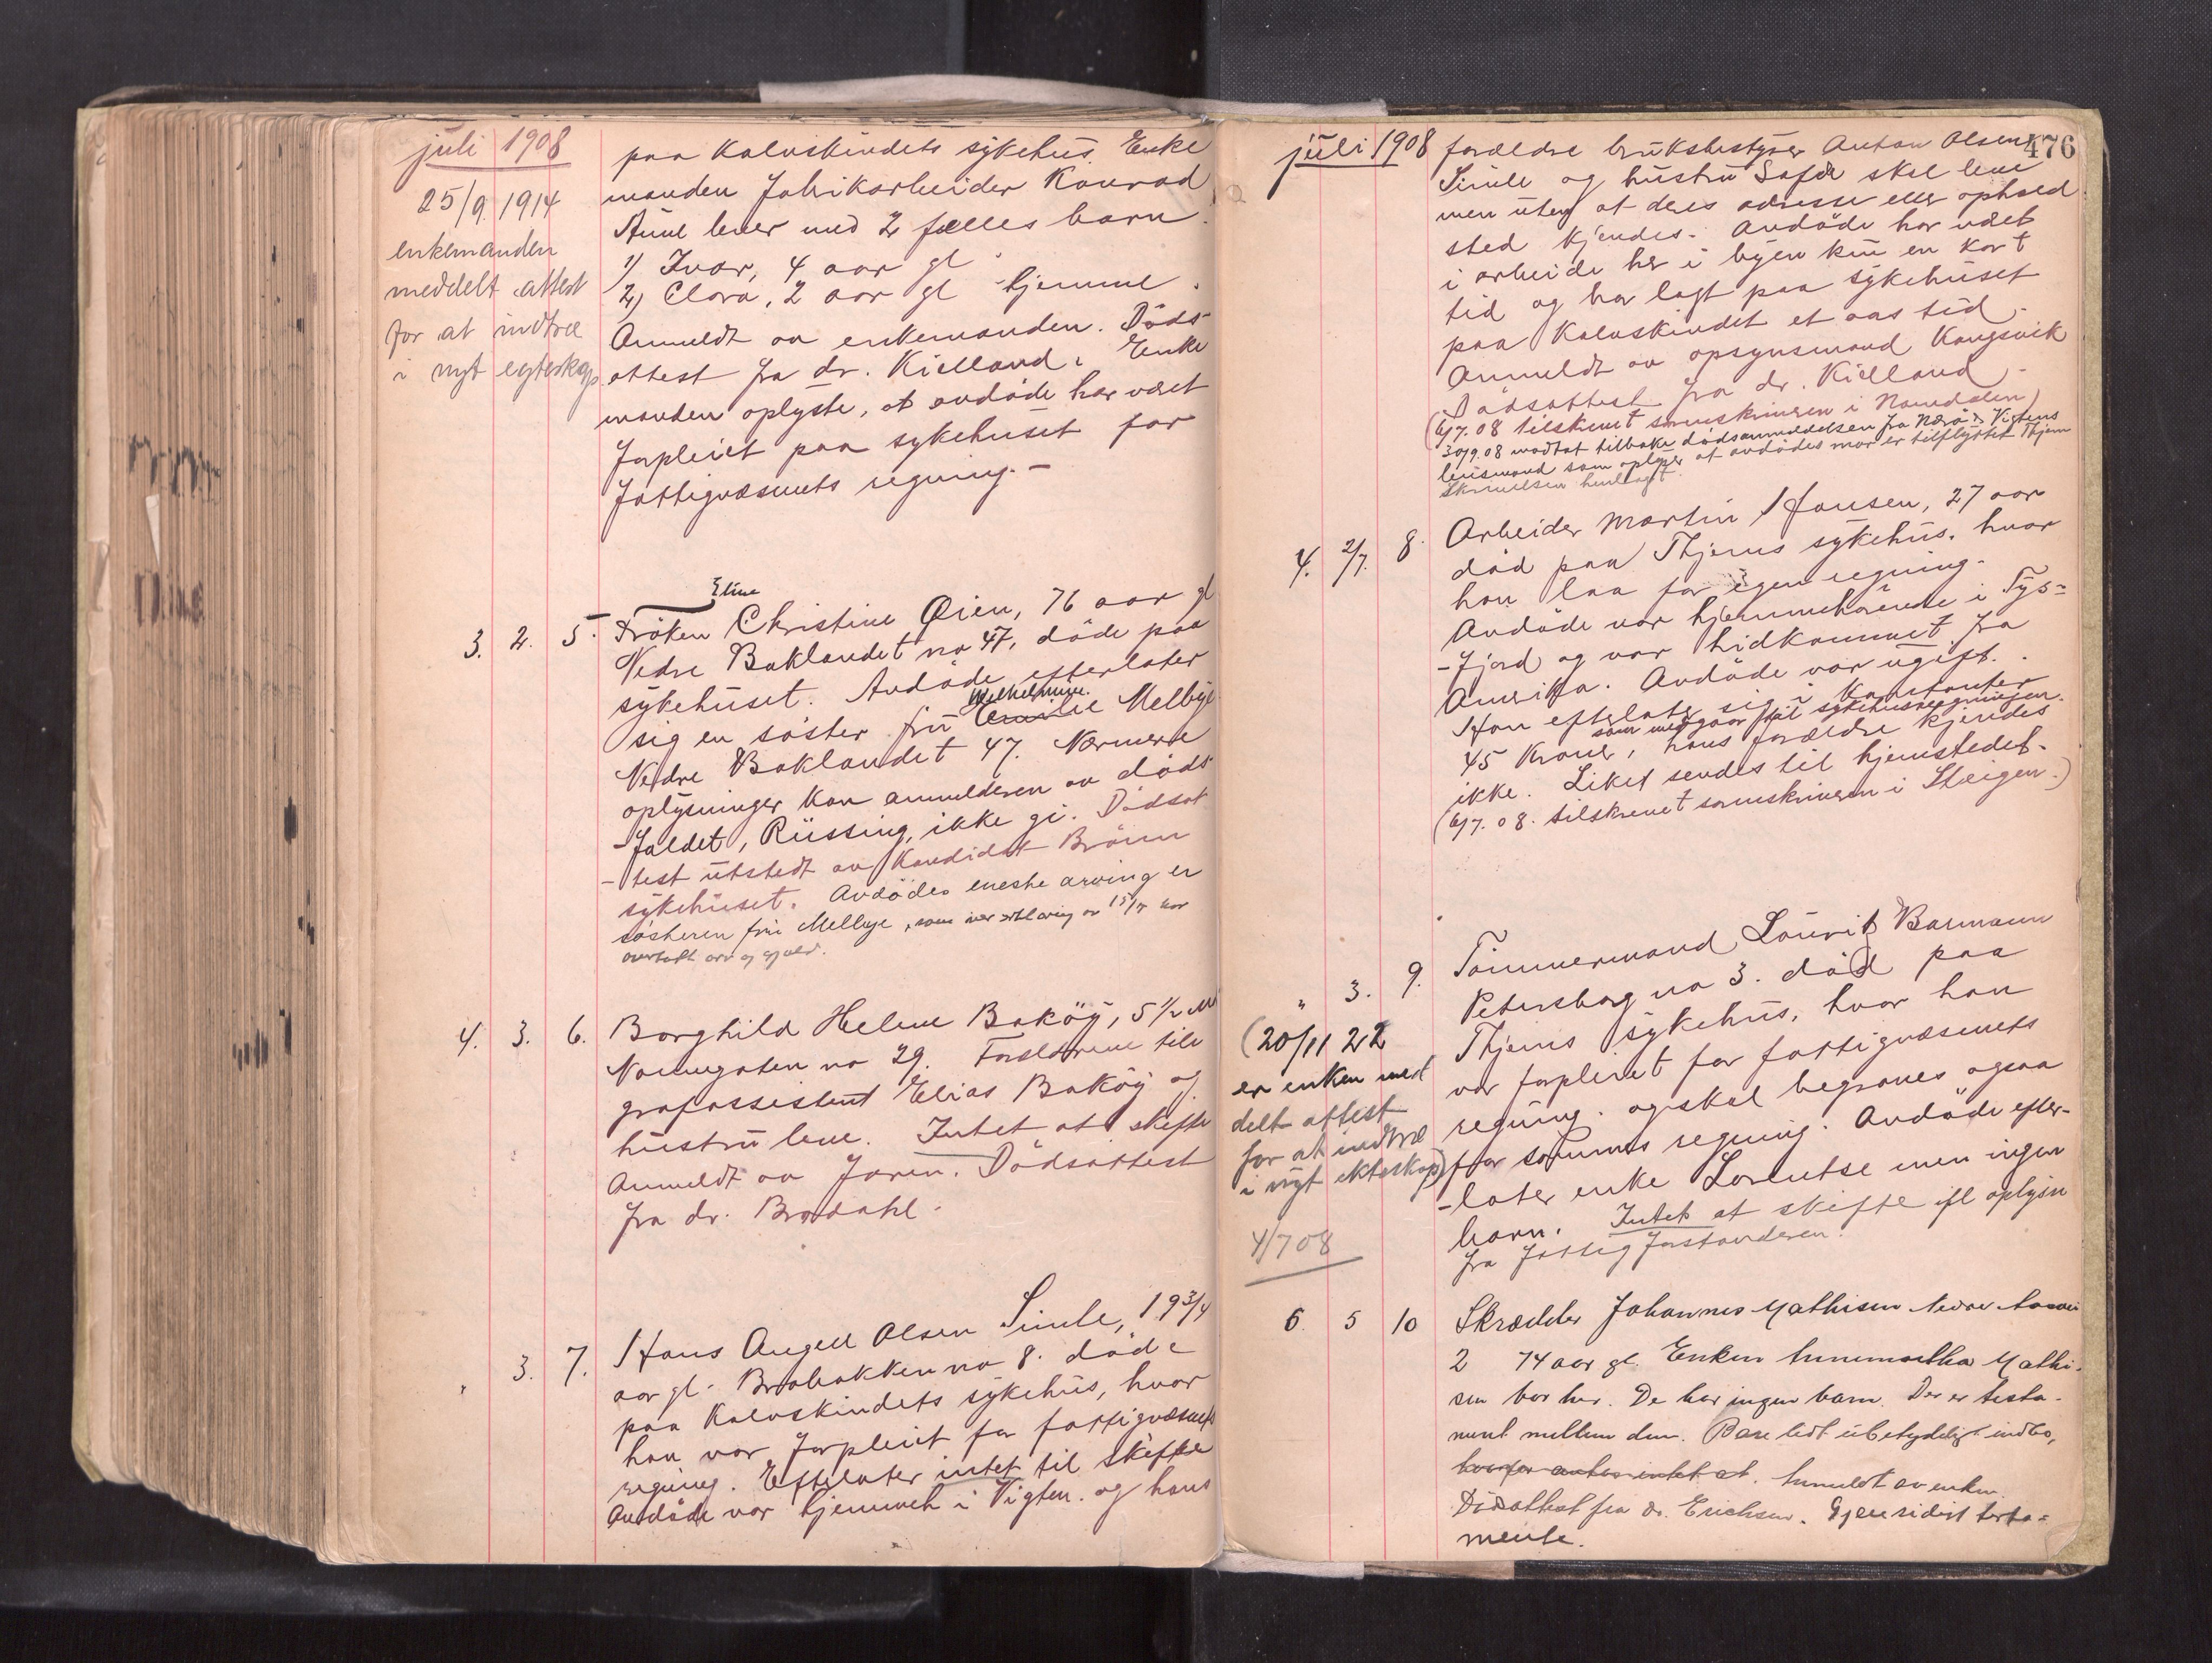 juli 1908
25/9 1914
enkemanden
meddelt attest
for at indtræ
i nyt egteskap.
paa Kalvskindets sykehus. Enke
manden fabrikarbeider Konrad
Aune lever med 2 fælles barn.
1) Ivar, 4 aar gl.
2) Clara, 2 aar gl hjemme.
Anmeldt av enkemanden. Døds-
attest fra dr. Kielland. Enke
manden oplyste, at avdøde har været
forpleiet paa sykehuset for
fattigvæsnets regning. -
3. 2. 5. Frøken Eline Christine Øien, 76 aar gl
Nedre Baklandet no 47, døde paa
sykehuset. Avdøde efterlater
sig en søster fru Emilie Wilhelmine. Melbye
Nedre Baklandet 47. Nærmere
oplysninger kan anmelderen av døds
-faldet, Rüssing, ikke gi. Dødsat
-test utstedt av kandidat Brønn
sykehuset. Avdødes eneste arving er
søsteren fru Melbye, som iver erklæring av 15/7 har
overtatt arv og gjæld.
4. 3. 6. Borghild Helene Bakøy, 5 1/2 M
Nonnegaten no 29. Forældrene tele
grafassistent Elias Bakøy og
hustru leve. Intet at skifte
Anmeldt av faren. Dødsattest
fra dr. Brodahl.
" 3. 7. Hans Angell Olsen Simle, 19 3/4
aar gl. Brobakken no 8. død e
paa Kalvskindets sykehus, hvor
han var forpleiet for fattigvæsnets
regning. Efterlater intet til skifte
Avdøde var hjemmeh i Vigten. og hans
juli 1908
476
forældre bruksbestyrer Anton Olsen
Simle og hustru Sofie skal leve
men uten at deres adresse eller ophold
sted kjendes. Avdøde har været
i arbeide her i byen kun en kort
tid og har lagt paa sykehuset
paa Kalvskindet et aas tid.
Anmeldt av opsynsmand Kongsvik
Dødsattest fra dr. Kielland.
(6/7.08 tilskrevet sorenskriveren i Namdalen)
30/9.08 modtat tilbake dødsanmeldelsen fra Nærø & Vigtens
lensmand som oplyser at avdødes mor er tilflyttet Thjem
Skrivelsen henlagt.
4. 2/7. 8. Arbeider Martin Hansen, 27 aar
død paa Thjems sykehus, hvor
han laa for egen regning.
Avdøde var hjemmehørende i Tys-
-fjord og var hidkommet fra
Amerika. Avdøde var ugift.
Han efterlater sig i Kontanter
som medgaar til sykehusregningen.
45 Kroner, hans forældre kjendes
ikke. Liket sendes til hjemstedet.
(6/7.08. tilskrevet sorenskriveren i Steigen.)
" 3. 9. Tømmermand Lauritz Barmann
Petersborg no 3. død paa
Thjems sykehus, hvor han
var forpleiet for fattigvæsnets
regning. og skal begraves ogsaa
for sammes regning. Avdøde efter-
-later enke Lorentse men ingen
barn. Intet at skifte ifl oplysn
fra fattigforstanderen.
(20/11 22
er enken med
delt attest
for at indtræ
i nyt ekteskap)
4/7 08
6. 5 10 Skrædder Johannes Mathisen Nedre
2 74 aar gl. Enken Mathi-
sen bor her. De har ingen barn. Der er testa-
ment mellem dem. Bare lidt ubetydeligt indbo,
Anmeldt av enken.
Dødsattest fra dr. Erichsen. Gjensidigt testa-
mente.